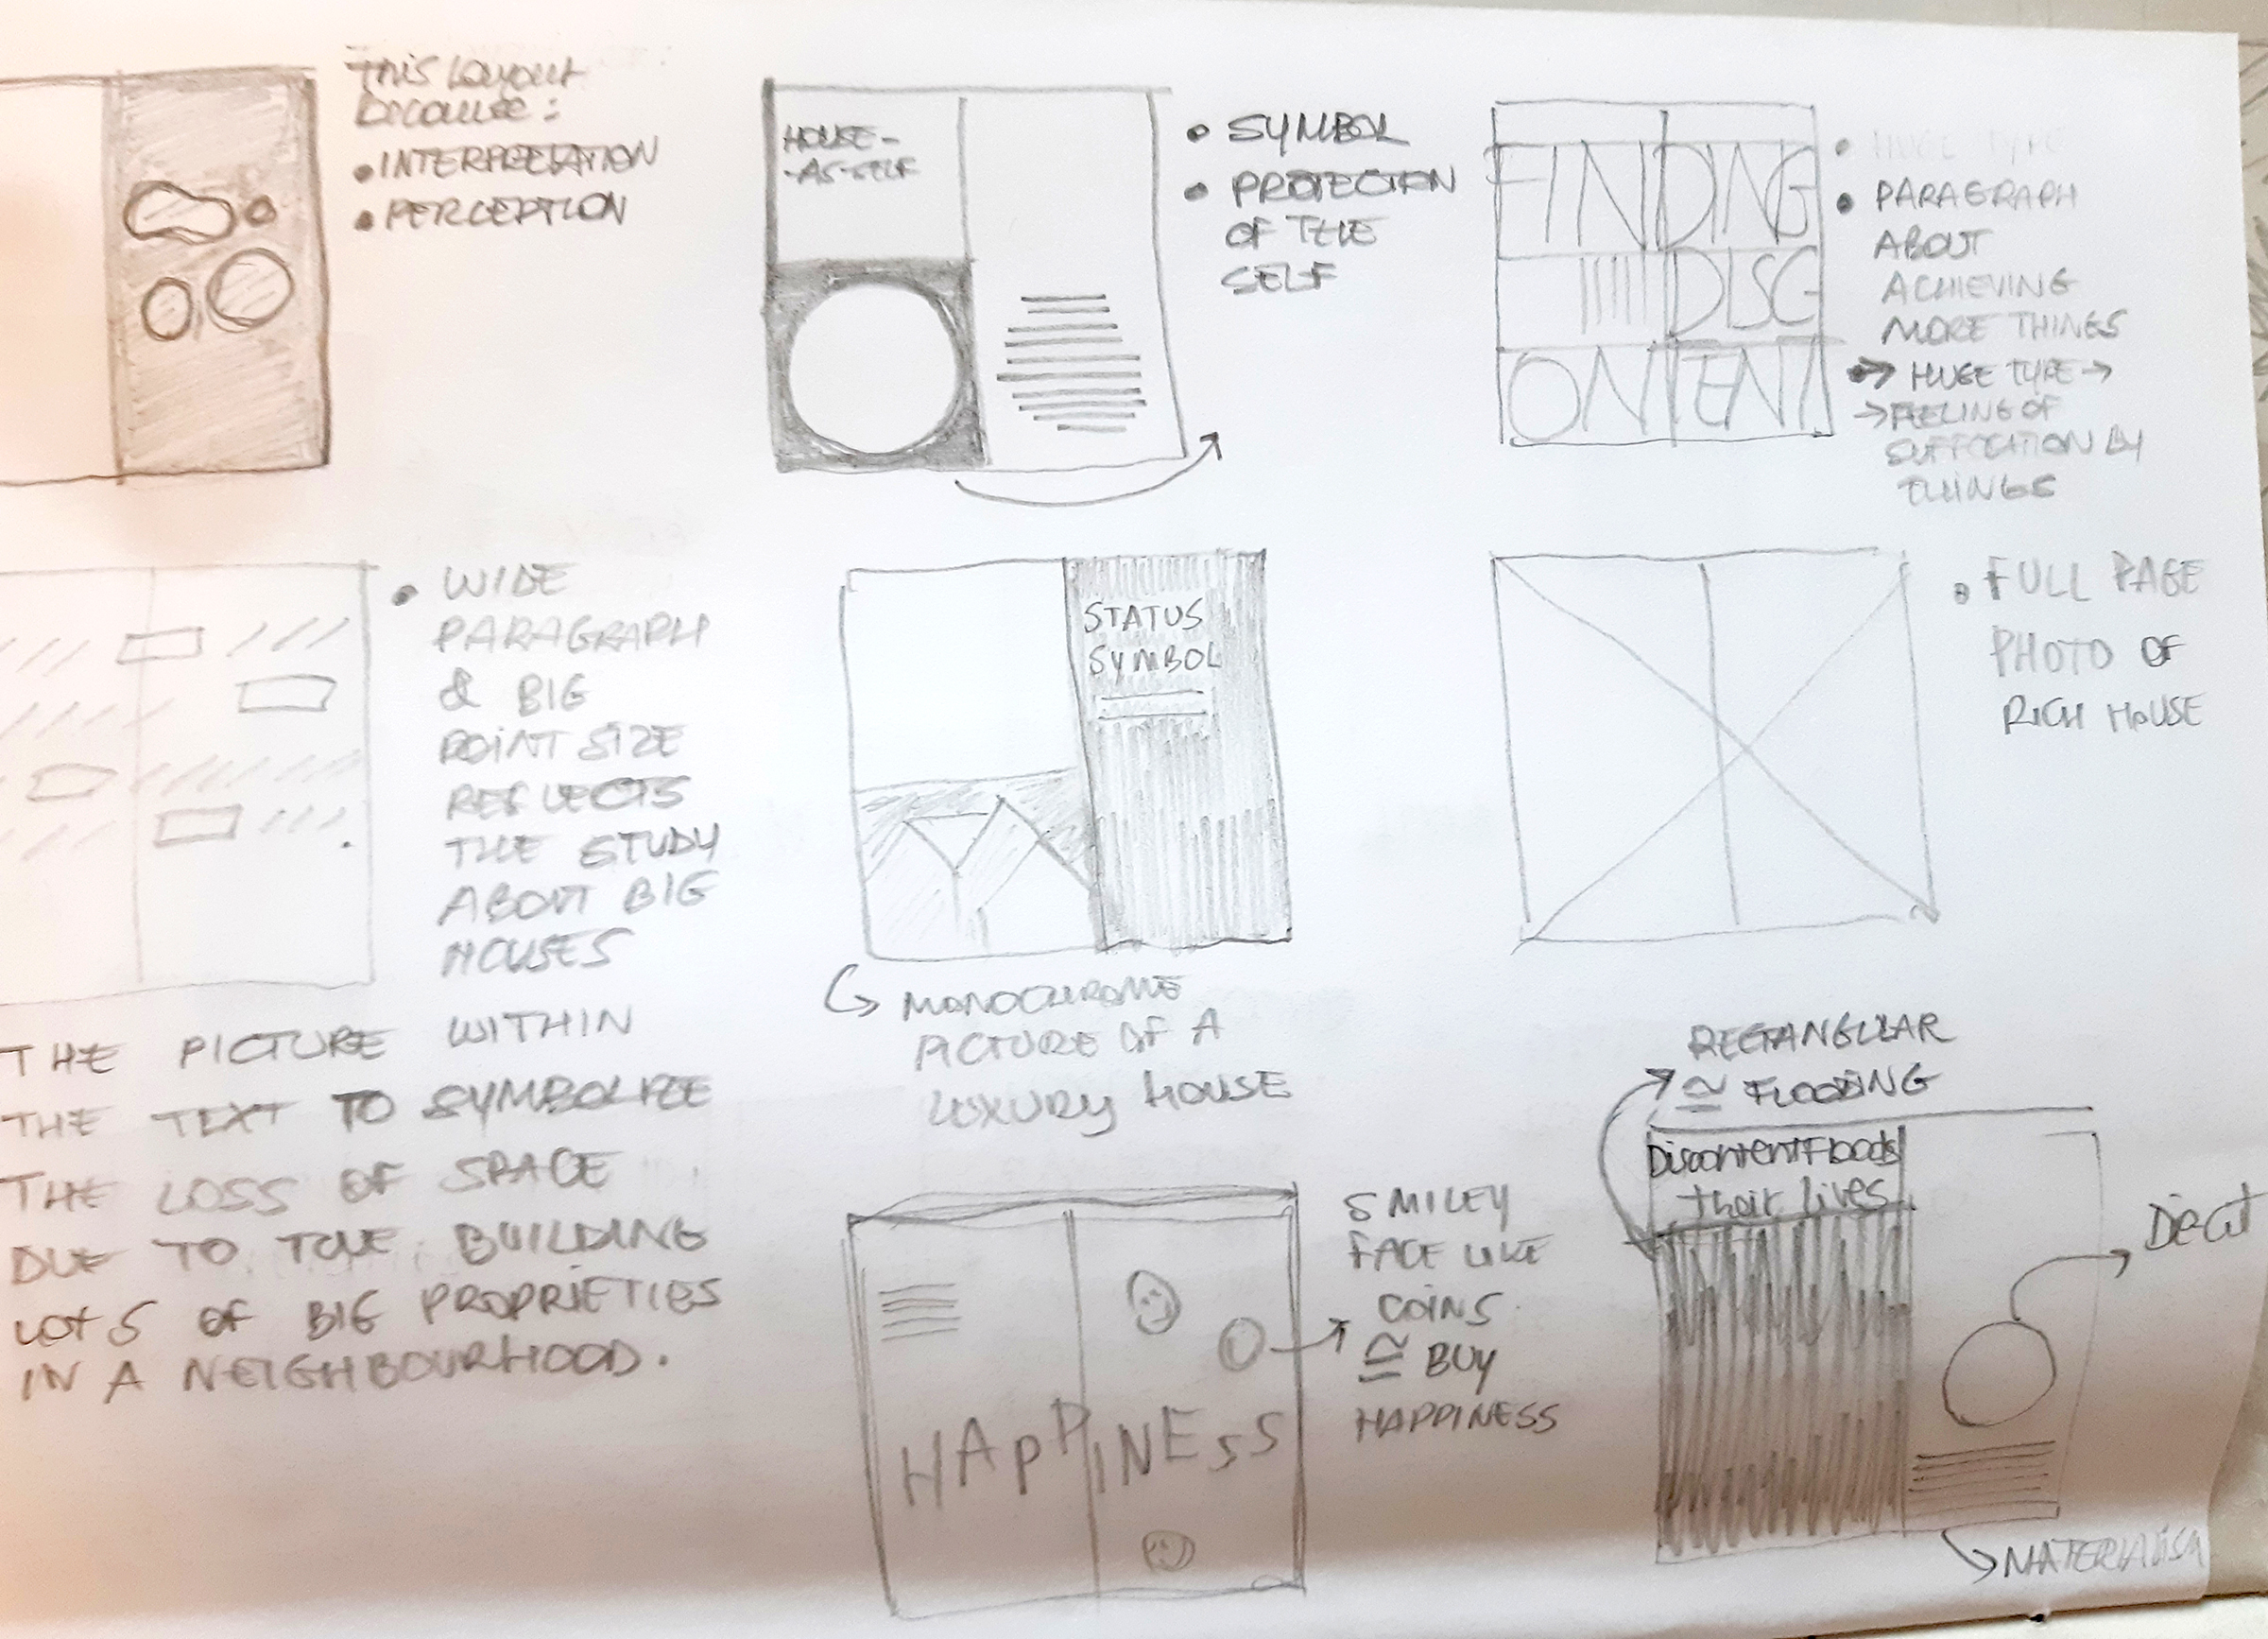 THIS LAYOUT
BECAUSE:
• INTERPRETATION
• PERCEPTION
HOUSE-
-AS-SELF
• SYMBOL
• PROTECTION
OF THE
SELF
FINDING
DISC
ONTENT
• HUGE TYPE
• PARAGRAPH
ABOUT
ACHIEVING
MORE THINGS
→ HUGE TYPE →
→ FEELING OF
SUFFOCATION BY
THINGS
• WIDE
PARAGRAPH
& BIG
POINT SIZE
REFLECTS
THE STUDY
ABOUT BIG
HOUSES
THE PICTURE WITHIN
THE TEXT TO SYMBOLIZE
THE LOSS OF SPACE
DUE TO THE BUILDING
LOTS OF BIG PROPRIETIES
IN A NEIGHBOURHOOD.
STATUS
SYMBOL
MONOCHROME
PICTURE OF A
LUXURY HOUSE
• FULL PAGE
PHOTO OF
RICH HOUSE
HAPPINESS
SMILEY
FACE LIKE
COINS
≅ BUY
HAPPINESS
RECTANGULAR
≅ FLOODING
Discontent Floods
their lives
Diecut
MATERIALISM